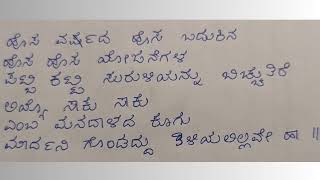 ಹೊಸ ವರ್ಷದ ಹೊಸ ಬದುಕಿನ
ಹೊಸ ಹೊಸ ಯೋಜನೆಗಳ
ಪಟ್ಟಿ ಕಟ್ಟಿ ಸುರುಳಿಯನ್ನು ಬಿಚ್ಚುತಿರೆ
ಅಯ್ಯೋ ಸಾಕು ಸಾಕು
ಎಂಬ ಮನದಾಳದ ಕೂಗು
ಮಾರ್ದನಿ ಗೊಂಡದ್ದು ತಿಳಿಯಲಿಲ್ಲವೇ ಹಾ ||